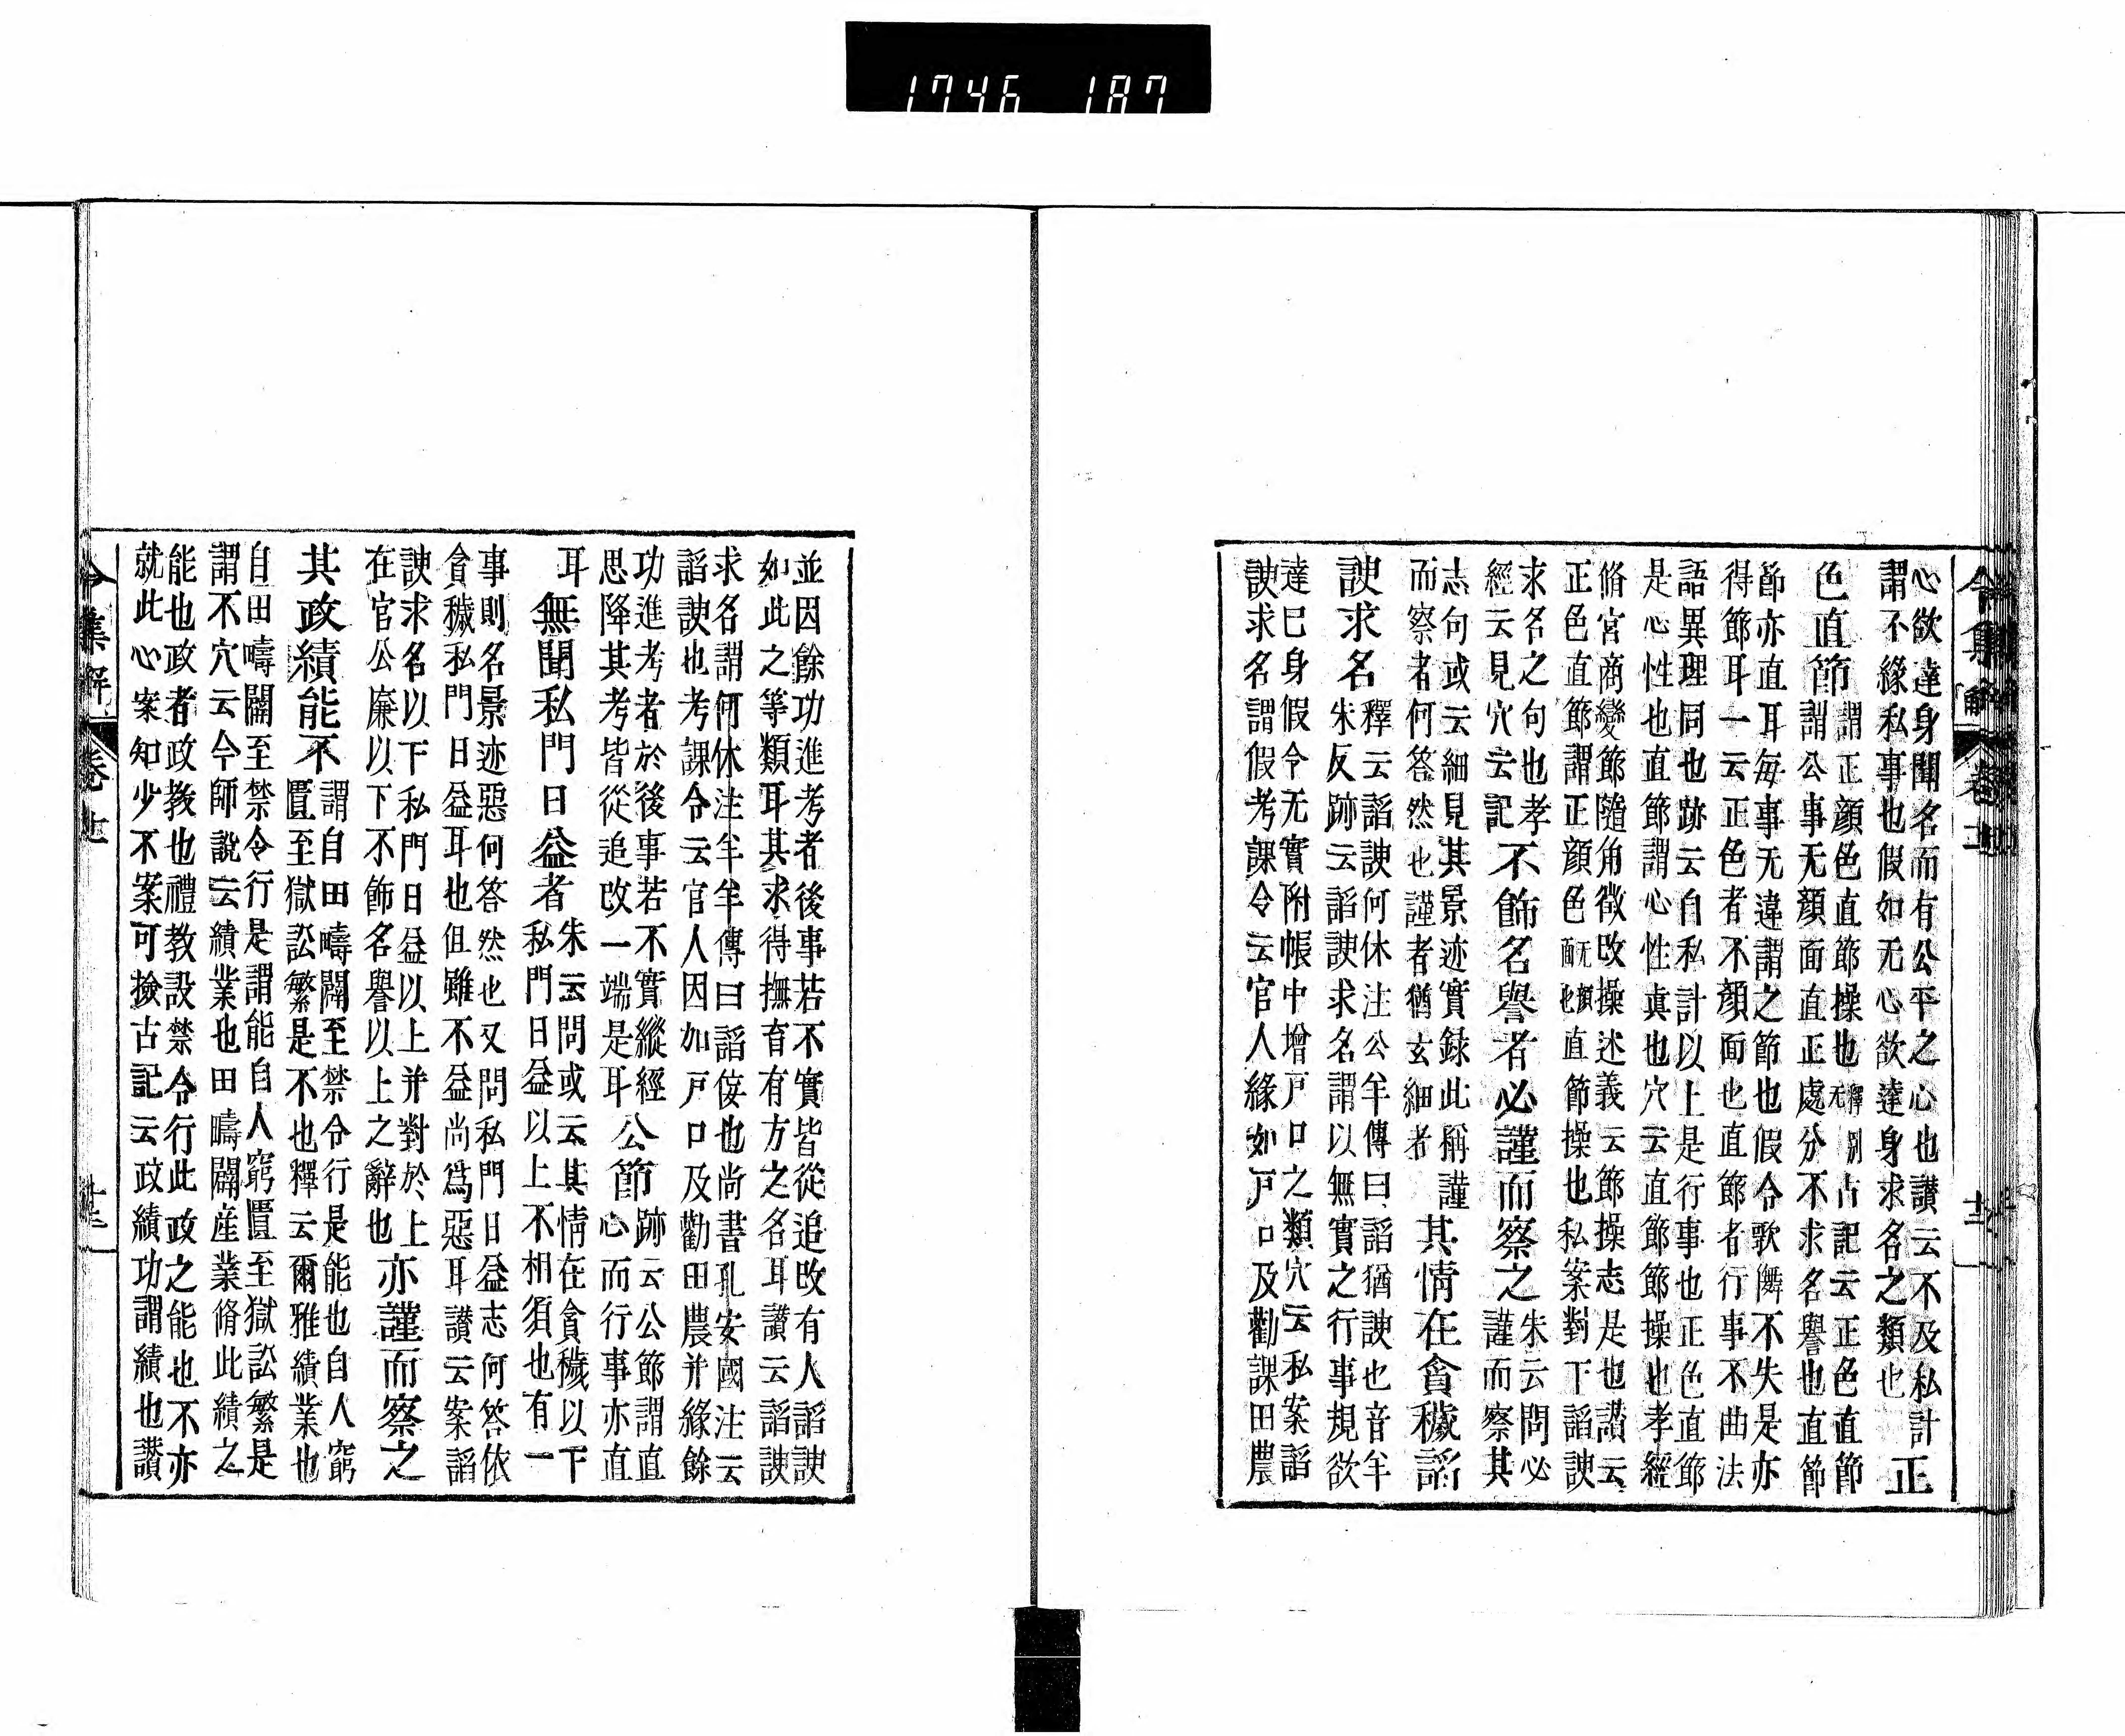 1746 187
令集解 卷
心欲達身聞名而有公平之心也讃云不及私計
謂不緣私事也假如无心欲達身求名之類也
正
色直節
謂正顔色直節操也釋无別古記云正色直節
謂公事无顔面直正處分不求名譽也直節
節亦直耳每事无違謂之節也假令歌隣不失是亦
得節耳一云正色者不顔面也直節者行事不曲法
語異理同也跡云自私計以上是行事也正色直節
是心性也直節謂心性真也穴云直節節操也孝經
脩宮商變節隨角徵改操述義云節操志是也讃云
正色直節謂正顔色无顔面也直節操也私案對下諂諛
求名之句也孝
經云見穴云記
不飾名譽者必謹而察之
朱云問必
謹而察其
志句或云細見其景迹實録此稱謹
而察者何答然也謹者猶玄細者
其情在貪穢諂
諛求名
釋云諂諛何休注公羊傳曰諂猶諛也音羊
朱反跡云諂諛求名謂以無實之行事規欲
達巳身假令无實附帳中增戸口之類穴云私案諂
諛求名謂假考課令云官人緣如戸口及勸課田農
並因餘功進考者後事若不實皆從追改有人諂諛
如此之等類耳其求得撫育有方之名耳讃云諂諛
求名謂何休注羊羊傳曰諂佞也尚書孔安國注云
諂諛也考課令云官人因如戸口及勸田農并緣餘
功進考者於後事若不實縱經
思降其考皆從追改一端是耳
公節
跡云公節謂直
心而行事亦直
耳
無聞私門日益者
朱云問或云其情在貪穢以下
私門日益以上不相須也有一
事則名景迹惡何答然也又問私門日益志何答依
貪穢私門日益耳也但雖不益尚爲惡耳讃云案諂
諛求名以下私門日益以上并對於上
在官公廉以下不飾名譽以上之辭也
亦謹而察之
其政績能不
謂自田疇闢至禁令行是能也自人窮
匱至獄訟繁是不也釋云爾雅績業也
自田疇闢至禁令行是謂能自人窮匱至獄訟繁是
謂不穴云今師說云績業也田疇闢産業脩此績之
能也政者政教也禮教設禁令行此政之能也不亦
就此心案知少不案可撿古記云政績功謂績也讃
令集解 卷